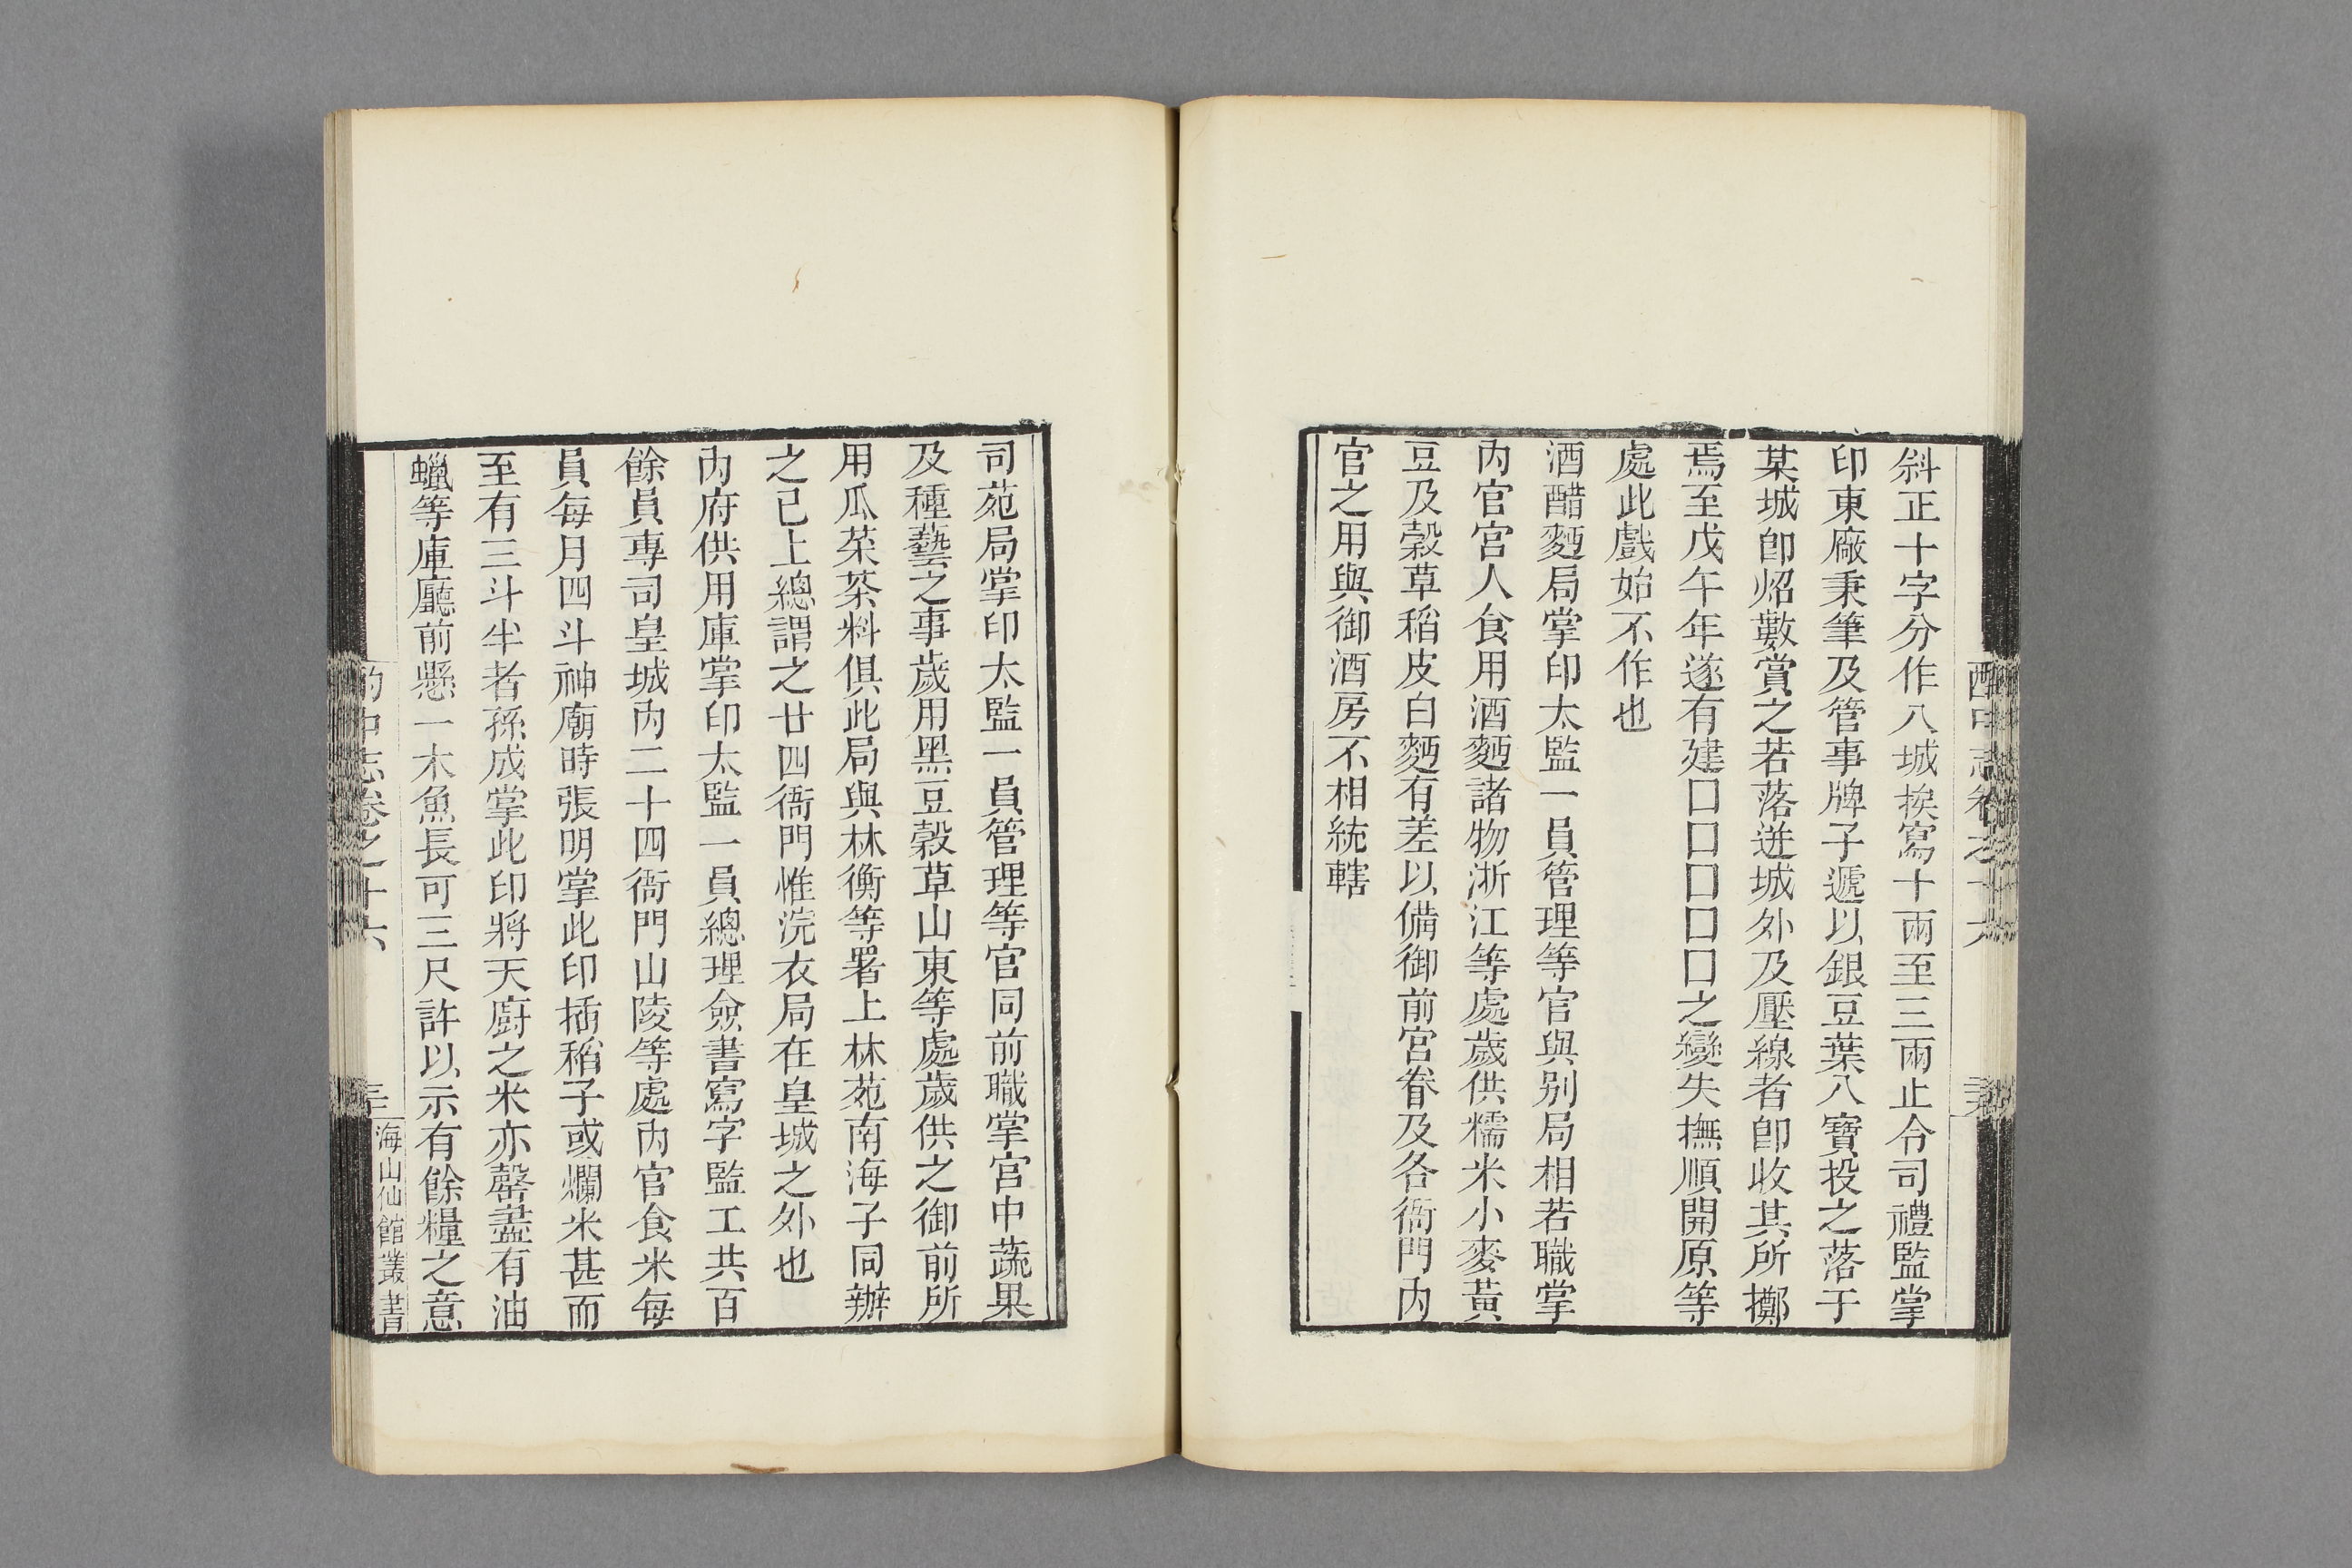 斜正十字分作八城挨寫十兩至三兩止令司禮監掌
印東廠秉筆及管事牌子遞以銀豆葉八寶投之落于
某城卽炤數賞之若落迸城外及壓線者卽收其所擲
焉至戊午年遂有建口口口口口之變失撫順開原等
處此戲始不作也
酒醋麪局掌印太監一員管理等官與别局相若職掌
內官宮人食用酒麪諸物浙江等處歲供糯米小麥黃
豆及穀草稻皮白麪有差以備御前宮眷及各衙門內
官之用與御酒房不相統轄
司苑局掌印太監一員管理等官同前職掌宮中蔬果
及種藝之事歲用黑豆穀草山東等處歲供之御前所
用瓜菜茶料俱此局與林衡等署上林苑南海子同辦
之已上總謂之廿四衙門惟浣衣局在皇城之外也
內府供用庫掌印太監一員總理僉書寫字監工共百
餘員專司皇城內二十四衙門山陵等處內官食米每
員每月四斗神廟時張明掌此印插稻子或爛米甚而
至有三斗半者孫成掌此印將天廚之米亦罄蓋有油
蠟等庫廳前懸一木魚長可三尺許以示有餘糧之意
酌中志卷之十六
海山仙館叢書